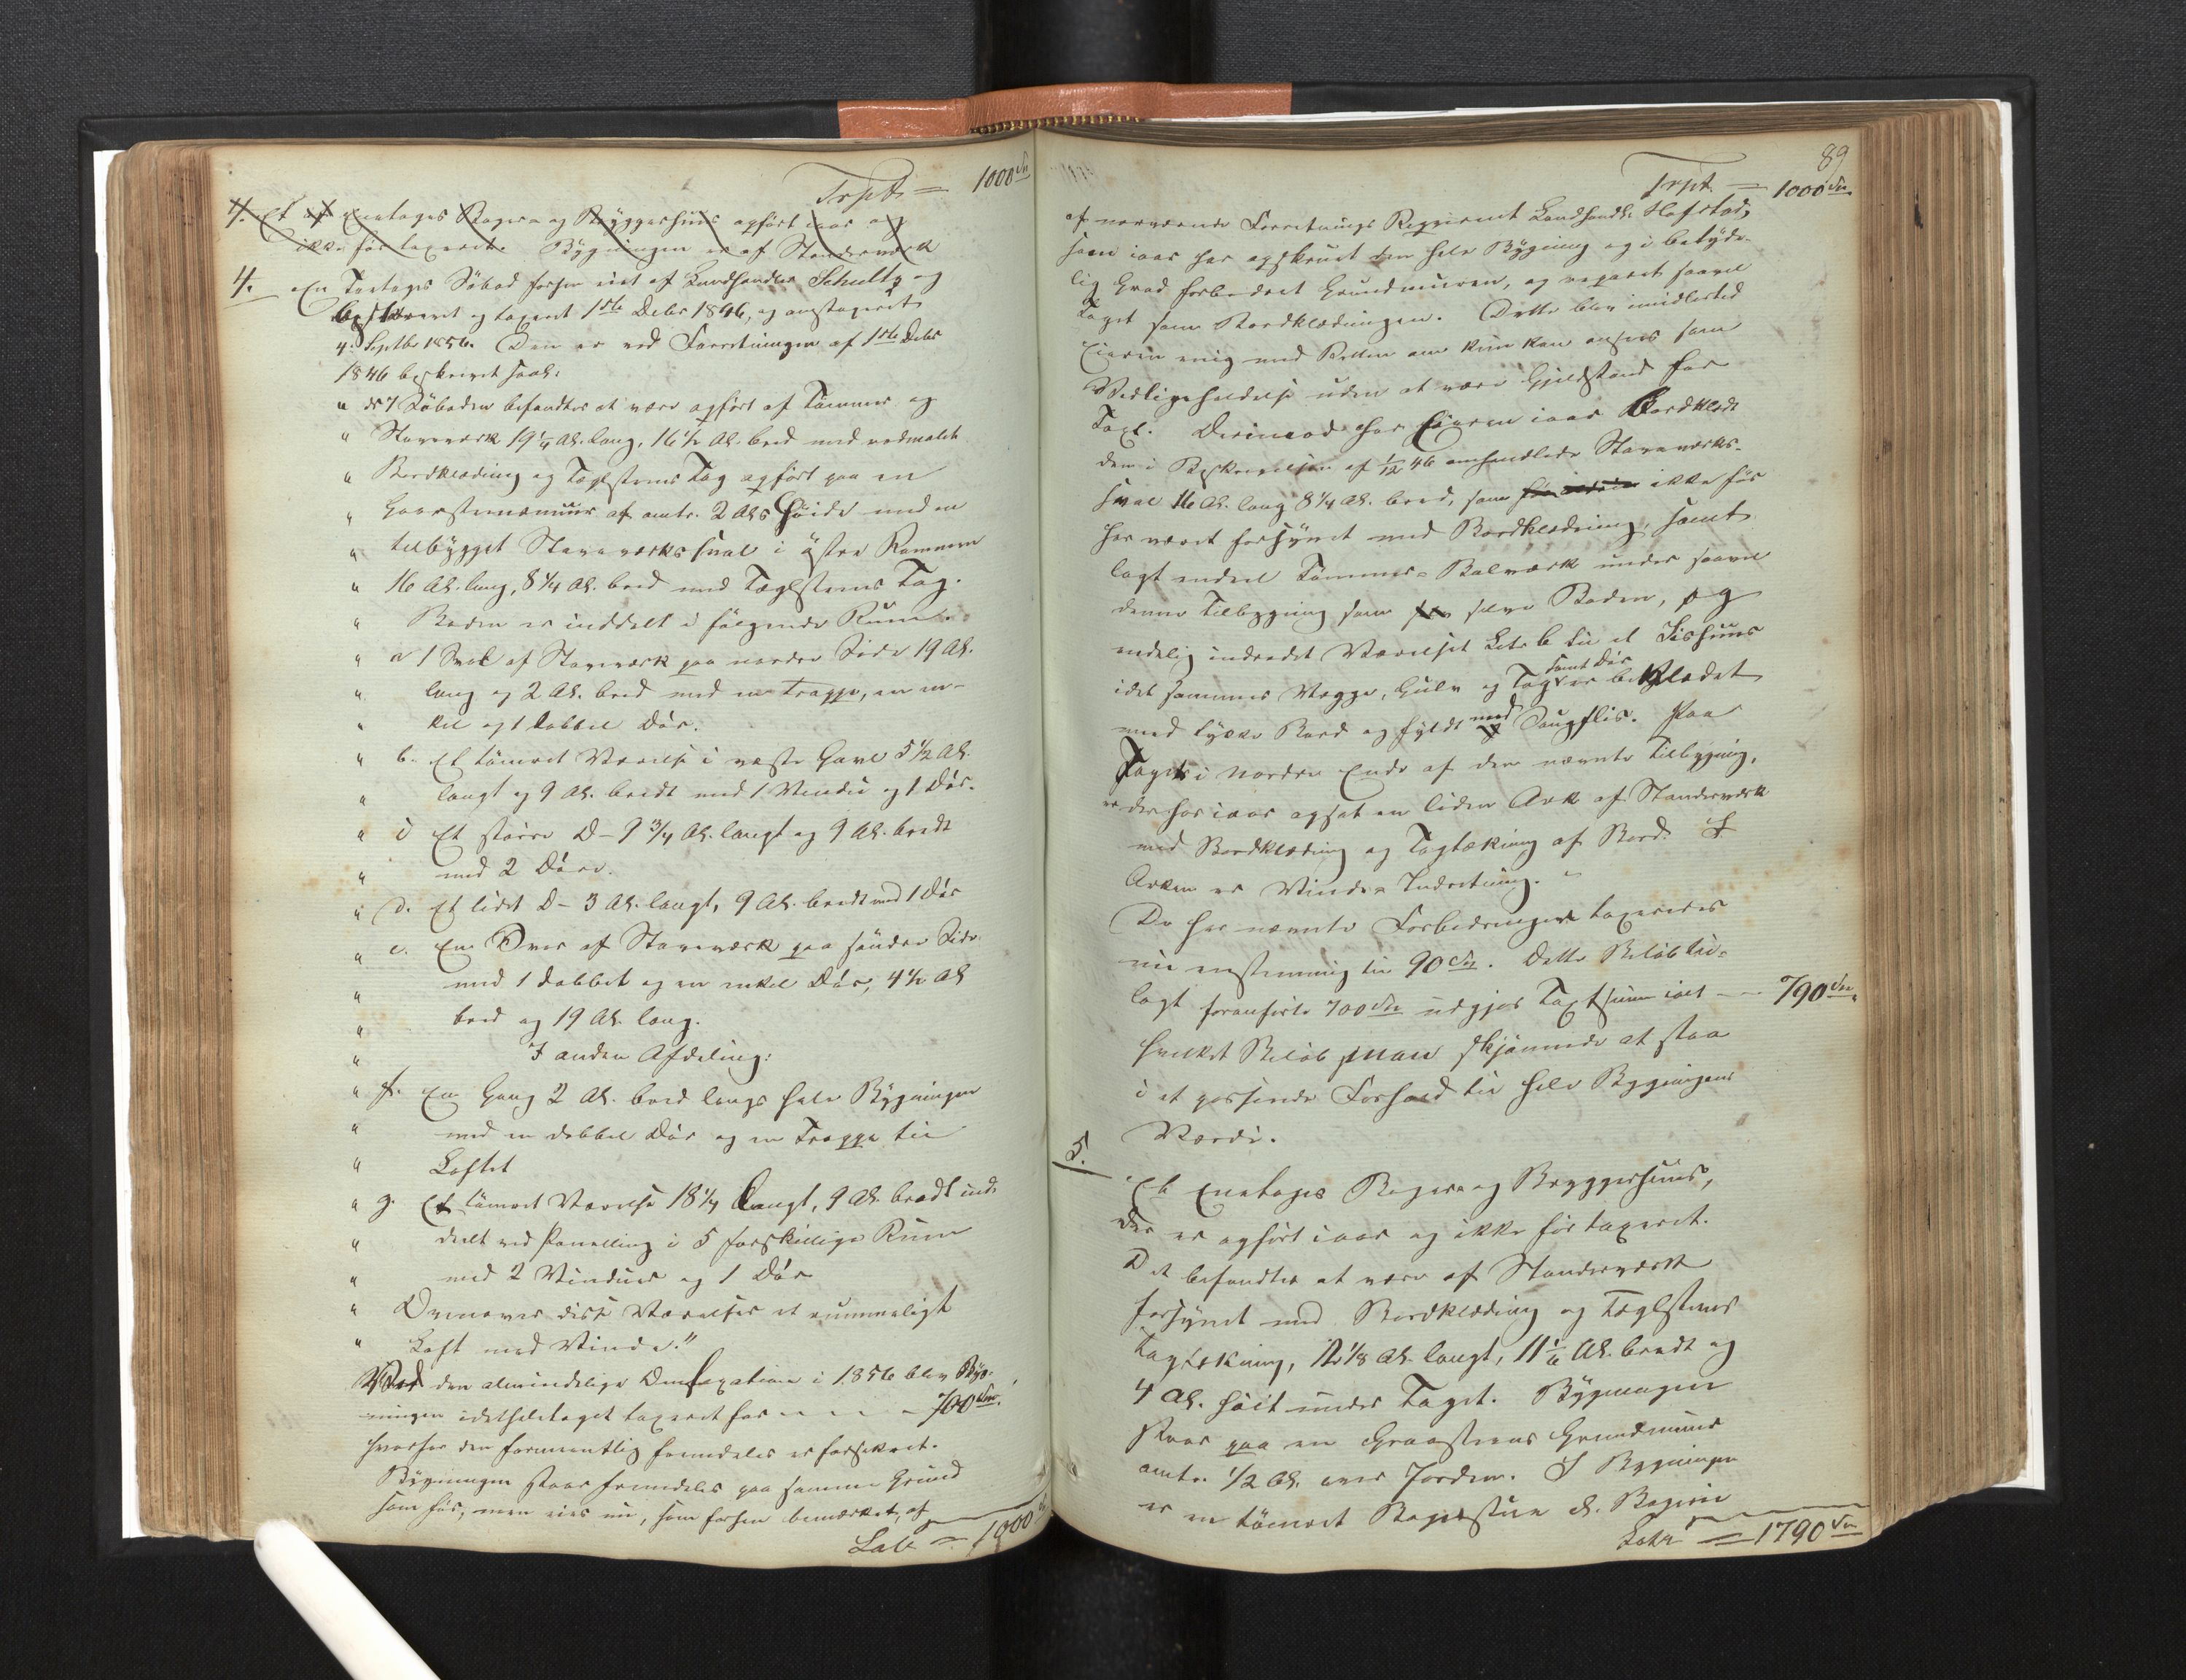 Trspt. = 1000 Spd
4. Et Enetages Bageri- og Bryggerhuus opført iaar og
ikke før taxeret. Bygningen er af Standerværk
4. En Toetages Søbod forhen eiet af Landhandler Schultz og
beskrevet og taxeret 1ste Debr 1846, og omtaxeret
4. Septbr 1856. Den er ved Forretningen af 1ste Debr
1846 beskrevet saal:
" ds 7 Søboden befandtes at være opført af Tømmer og
" Stavværk 19 1/4 Al. lang, 16 1/2 Al. bred med rødmalet
" Bordklædning og Tæglsteens Tag opført paa en
" Graasteensmuur af omtr. 2 Als Høide med en
" tilbygget Stavværkssval i østre Rammen
" 16 Al. lang, 8 1/4 Al. bred med Tæglsteens Tag.
" Boden er inddelt i følgende Rum:
" a 1 Sval af Stavværk paa nordre Side 19 Al.
" lang og 2 Al. bred med en Trappe, en en-
" kel og 1 dobbel Dør.
" b. Et tømret Værelse i vestre Gavl 5 1/2 Al.
" langt og 9 Al. bredt med 1 Vindu og 1 Dør.
" c Et større D- 9 3/4 Al. langt og 9 Al. bredt
" med 2 Døre.
" d. Et lidet D- 3 Al. langt, 9 Al. bredt med 1 Dør
" e. En Sval af Stavværk paa søndre Side
" med 1 dobbel og en enkel Dør, 4 1/2 Al
" bred og 19 Al. lang.
" I anden Afdeling:
" f. En Gang 2 Al. bred langs hele Bygningen
" med en dobbel Dør og en Trappe til
" Loftet
" g. Et tømret Værelse 18 1/4 langt, 9 Al. bredt ind-
" deelt ved Panelling i 5 forskillige Rum
" med 2 Vinduer og 1 Dør
" Ovenover disse Værelser et rummeligt
" Loft med Vinde."
Ved den almindelige Omtaxation i 1856 blev Byg-
ningen idetheletaget taxeret for - - - 700 Spd.
hvorfor den formentlig fremdeles er forsikret.
Bygningen staar fremdeles paa samme Grund
som før, men eies nu, som forhen bemærket, af
Lat. = 1000
89
Trspt. = 1000 Spd
af nærværende Forretnings Reqvirent Landhandl. Hofstad,
som iaar har opskruet den hele Bygning og i betyde-
lig Grad forbedret Grundmuren, og reparert saavel
Taget som Bordklædningen. Dette blev imidlertid
Eieren enig med Retten om kun kan ansees som
Vedligeholdelse uden at være Gjenstand for
Taxt. Derimod har Eieren iaar Bordklædt
den i Beskrivelsen af 1/12 46 omhandlede Stavværks-
sval 16 Al. lang 8 1/4 Al. bred, som ikke før
har været forsynet med Bordklædning, samt
lagt endeel Tømmer-Bolværk under saavel
denne Tilbygning som selve Boden, og
endelig indredet Værelset Litr. b til et Iishuus
idet sammes Vægge, Gulv og Tag samt Dør er beklædet
med tykke Bord og fyldt med Saugflis. Paa
Taget i nordre Ende af den nævnte Tilbygning,
er derhos iaar opsat en liden Ark af Standerværk
med Bordklædning og Tagtækning af Bord. I
Arken er Vinde-Indretning.
De her nævnte Forbedringer taxeredes
nu enstemmig til 90 Spd. Dette Beløb til-
lagt foranførte 700 Spd udgjør Taxtsum ialt - 790 Spd.
hvilket Beløb man skjønnede at staa
i et passende Forhold til hele Bygningens
Værdi.
5.
Et Enetages Bageri- og Bryggerhuus,
der er opført iaar og ikke før taxeret.
Det befandtes at være af Standerværk
forsynet med Bordklædning og Tæglsteens
Tagtækning, 12 1/8 Al. langt, 11 1/6 Al. bredt og
4 Al. høit under Taget. Bygningen
staar paa en Graasteens Grundmuur
omtr. 1/2 Al. over Jorden. I Bygningen
er en tømret Bagerstue d. Bageri
Latr = 1790 Spd